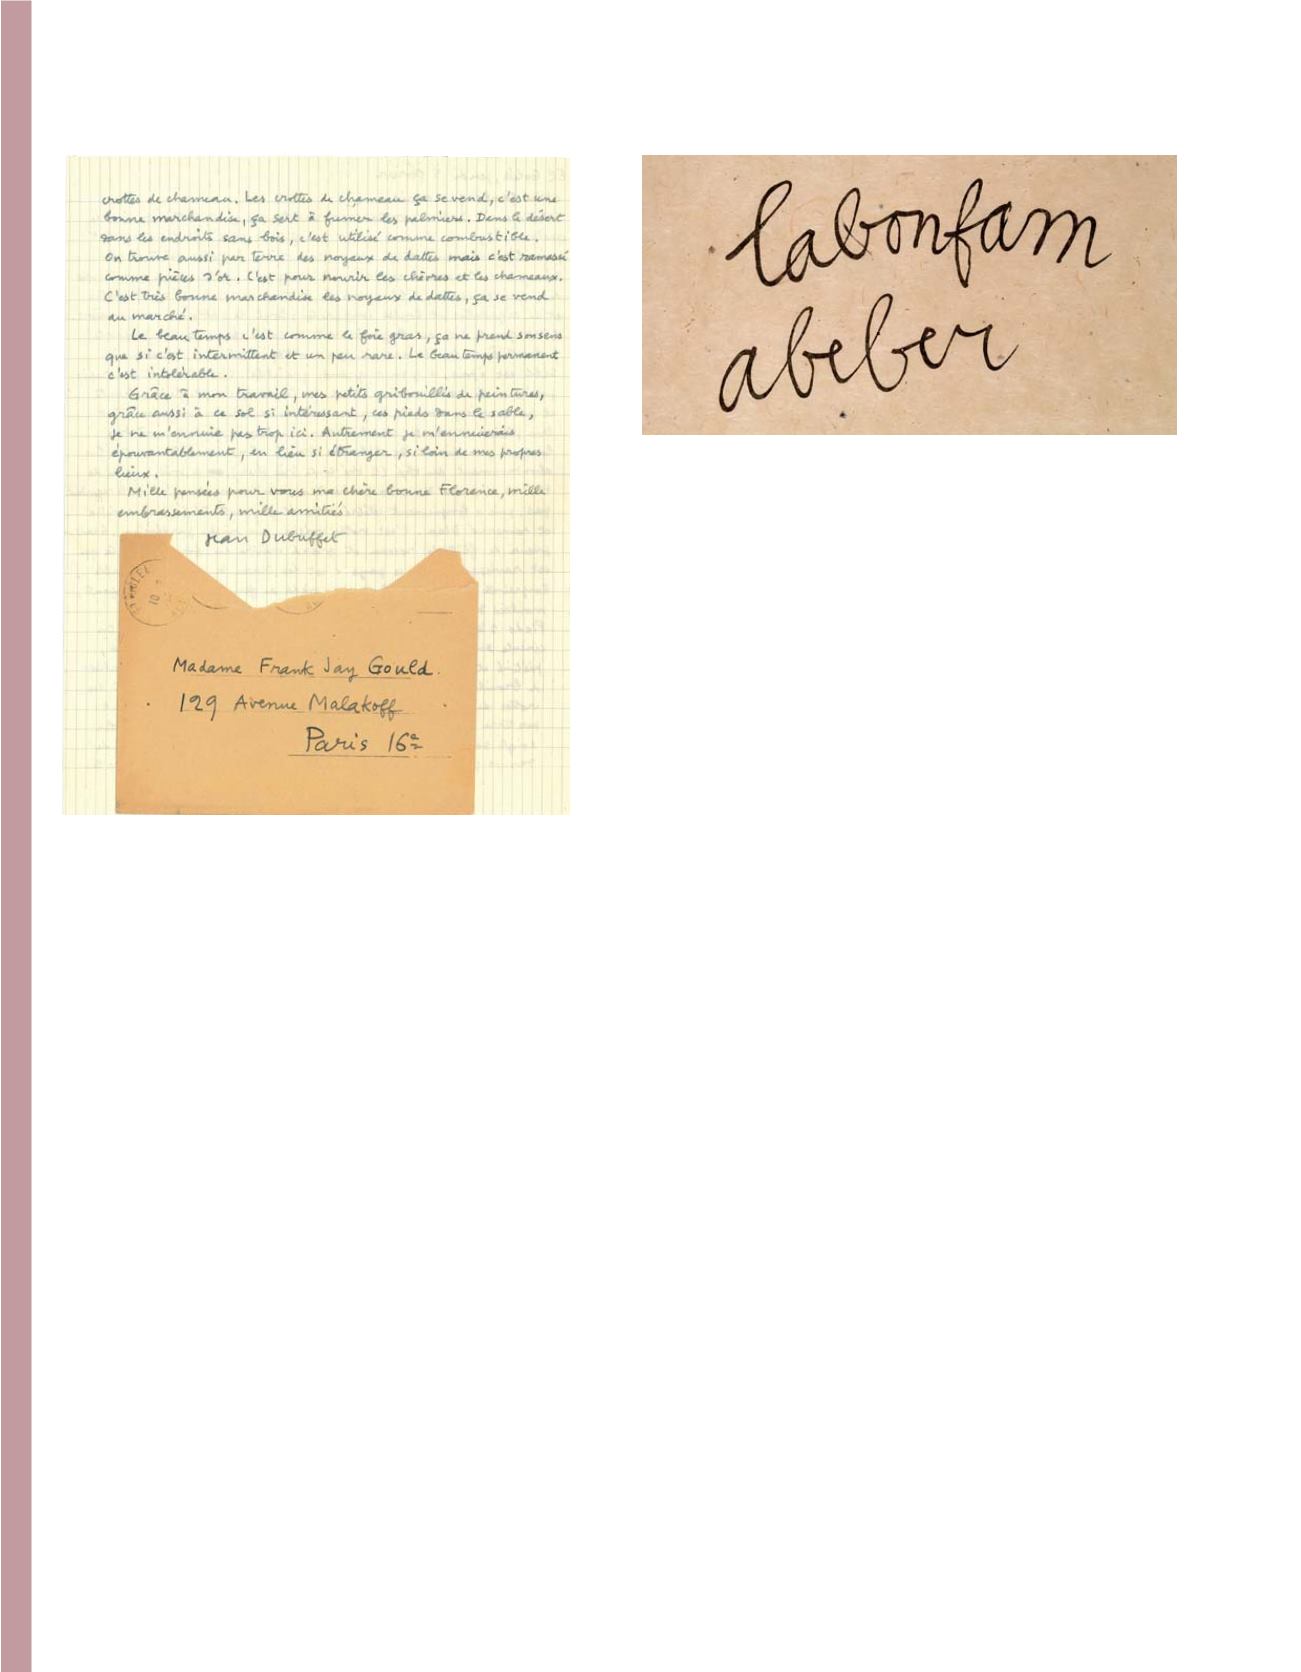 crottes de chameau. Les crottes de chameau ça se vend, c'est une
bonne marchandise, ça sert à fumer les palmiers. Dans le désert
dans les endroits sans bois, c'est utilisé comme combustible.
On trouve aussi par terre des noyaux de dattes mais c'est ramassé
comme pièces d'or. C'est pour nourir les chèvres et les chameaux.
C'est très bonne marchandise les noyaux de dattes, ça se vend
au marché.
Le beau temps c'est comme le foie gras, ça ne prend son sens
que si c'est intermittent et un peu rare. Le beau temps permanent
c'est intolérable.
Grâce à mon travail, mes petits gribouillis de peintures,
grâce aussi à ce sol si intéressant, ces pieds dans le sable,
je ne m'ennuie pas trop ici. Autrement je m'ennuierais
épouvantablement, en lieu si étranger, si loin de mes propres
lieux.
Mille pensées pour vous ma chère bonne Florence, mille
embrassements, mille amitiés
Jean Dubuffet
10
Madame Frank Jay Gould.
129 Avenue Malakoff
Paris 16e
labonfam
abeber